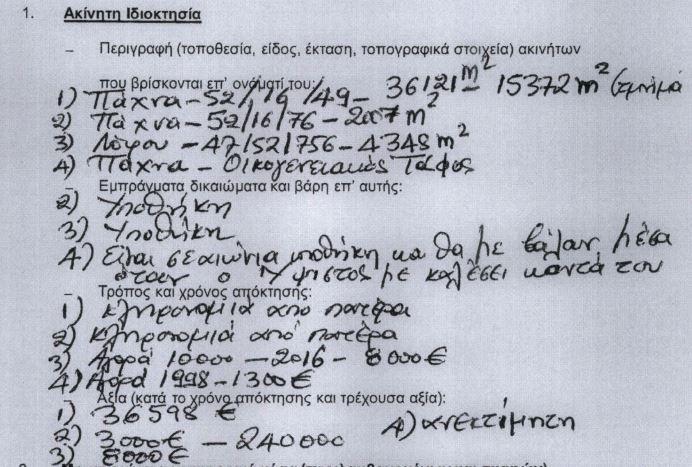 1. Ακίνητη Ιδιοκτησία
– Περιγραφή (τοποθεσία, είδος, έκταση, τοπογραφικά στοιχεία) ακινήτων
που βρίσκονται επ' ονόματί του:
1) Πάχνα – 52/19/49 – 36121 m² – 15372 m² (τμήμα
2) Πάχνα – 52/16/76 – 2007 m²
3) Λόφου – 47/52/756 – 4348 m²
4) Πάχνα – Οικογενειακός Τάφος
– Εμπράγματα δικαιώματα και βάρη επ' αυτής:
2) Υποθήκη
3) Υποθήκη
4) Είναι σε αιώνια υποθήκη και θα με βάλουν μέσα
όταν ο Ύψιστος με καλέσει κοντά του
– Τρόπος και χρόνος απόκτησης:
1) Κληρονομιά από πατέρα
2) Κληρονομιά από πατέρα
3) Αγορά 10000 – 2016 – 8000€
4) Αγορά 1998 – 1300€
– Αξία (κατά το χρόνο απόκτησης και τρέχουσα αξία):
1) 36598 €
2) 3000€ – 240000 4) ανεκτίμητη
3) 8000€